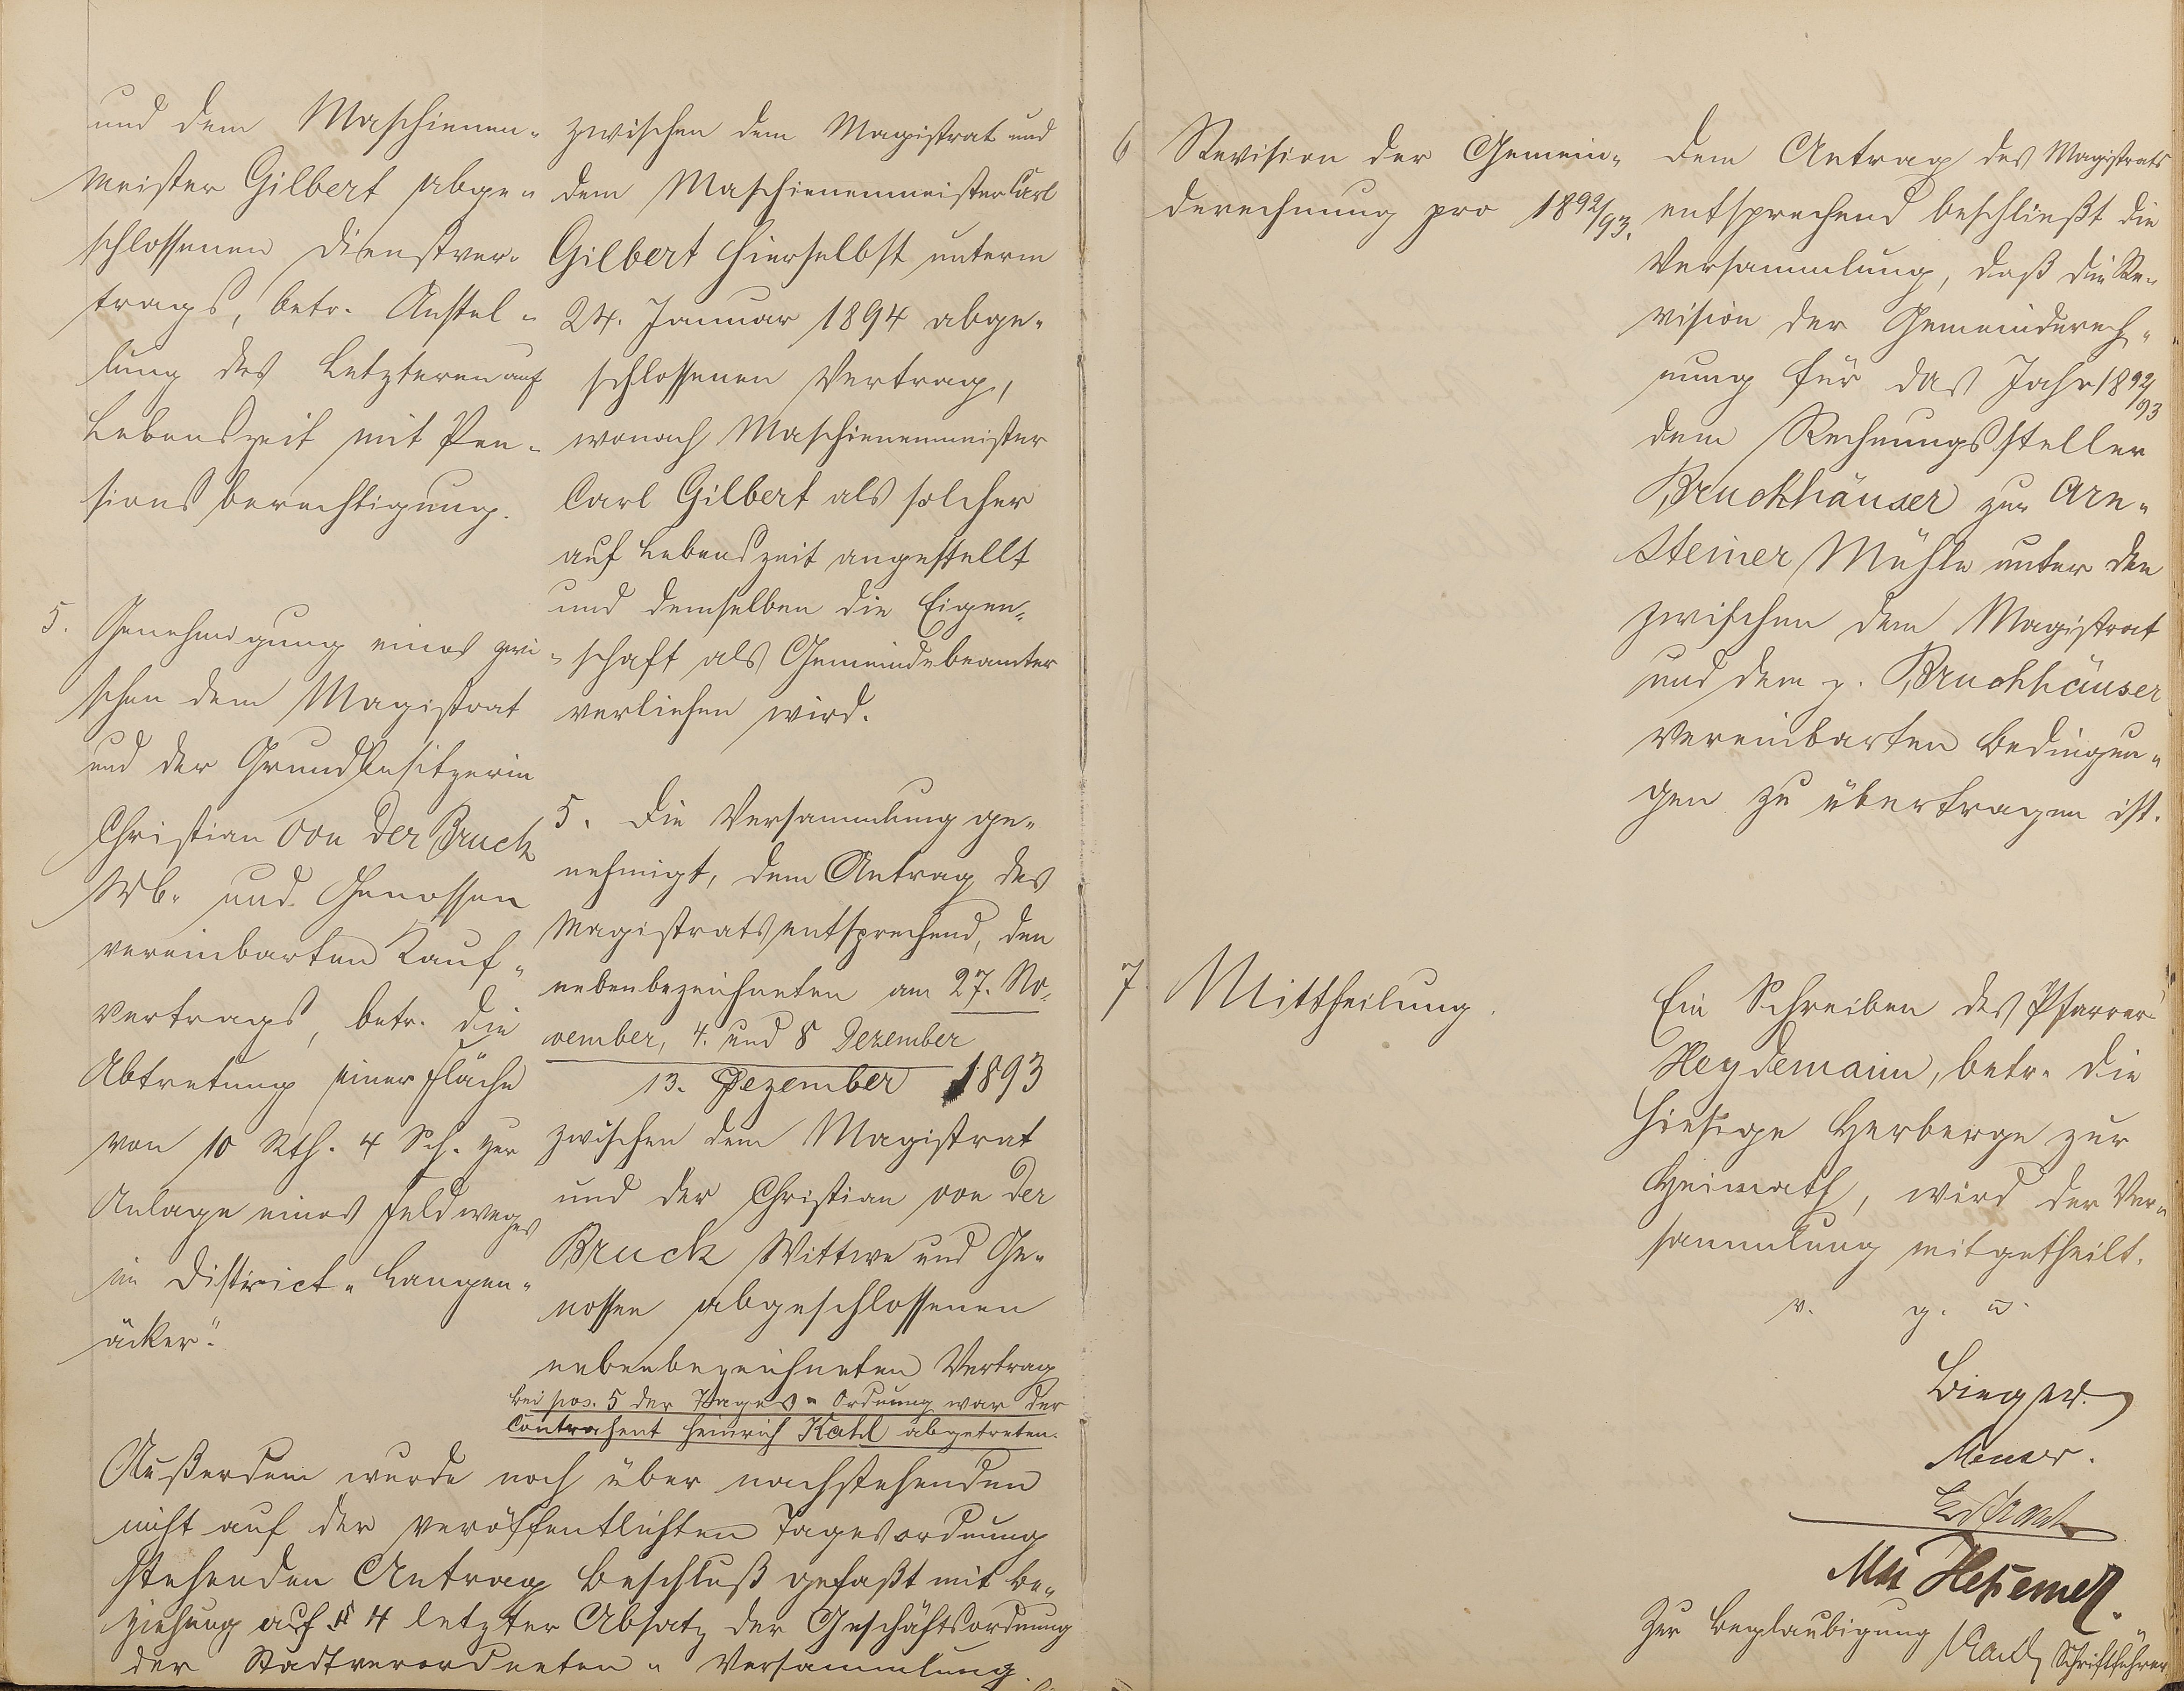 und dem Maschienen-
meister Gilbert abge-
schlossenen Dienstver-
trags, betr. Anstel-
lung des Letzteren auf
Lebenszeit mit Pen-
sionsberechtigung.
5. Genehmigung eines zwi-
schen dem Magistrat
und der Grundbesitzerin
Christian von der Bruck
Wb. und Genossen
vereinbarten Kauf-
vertrags, betr. die
Abtretung einer Fläche
von 10 Rth. 4 Sch. zur
Anlage eines Feldweges
im District "Langen-
äcker".
zwischen dem Magistrat und
dem Maschienenmeister Carl
Gilbert hierselbst unterm
24. Januar 1894 abge-
schlossenen Vertrag,
wonach Maschienenmeister
Carl Gilbert als solcher
auf Lebenszeit angestellt
und demselben die Eigen-
schaft als Gemeindebeamter
verliehen wird.
5. Die Versammlung ge-
nehmigt, dem Antrag des
Magistrats entsprechend, den
nebenbezeichneten am 27. No-
vember, 4. und 8 Dezember
13. Dezember 1893
zwischen dem Magistrat
und der Christian von der
Bruck Wittwe und Ge-
nossen abgeschlossenen
nebenbezeichneten Vertrag
bei pos. 5 der Tages-Ordnung war der
Contrahent Heinrich Kahl abgetreten.
Außerdem wurde noch über nachstehenden
nicht auf der veröffentlichten Tagesordnung
stehenden Antrag Beschluß gefaßt mit Be-
ziehung auf § 4 letzter Absatz der Geschäftsordnung
der Stadtverordneten-Versammlung.
6 Revision der Gemein-
derechnung pro 1892/93.
Dem Antrag des Magistrats
entsprechend beschließt die
Versammlung, daß die Re-
vision der Gemeinderech-
nung für das Jahr 1892/93
dem Rechnungssteller
Bruchhäuser zur Arn-
steiner Mühle unter den
zwischen dem Magistrat
und dem p. Bruchhäuser
vereinbarten Bedingun-
gen zu übertragen ist.
7 Mittheilung.
Ein Schreiben des Pfarrer
Heydemann, betr. die
hiesige Herberge zur
Heimath, wird der Ver-
sammlung mitgetheilt.
v. g. u.
Menser.
Zur Beglaubigung
Schriftführer